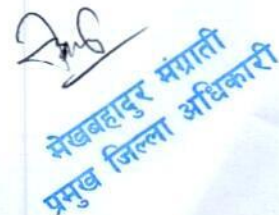 मेखबहादुर मंग्राती
प्रमुख जिल्ला अधिकारी